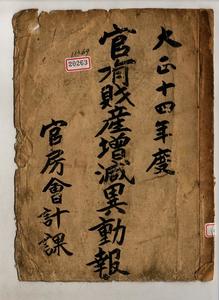 大正十四年度
官有財産增減異動報
官房會計課
20263